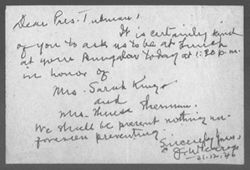 Dear Pres. Tubman,
It is certainly kind
of you to ask us to be at lunch
at your Bungalow today at 1:30 p.m.
in honor of
Mrs. Sarah King
and
Mrs. Theresa Sherman.
We shall be present nothing un-
foreseen preventing.
Sincerely yours,
21-12-46